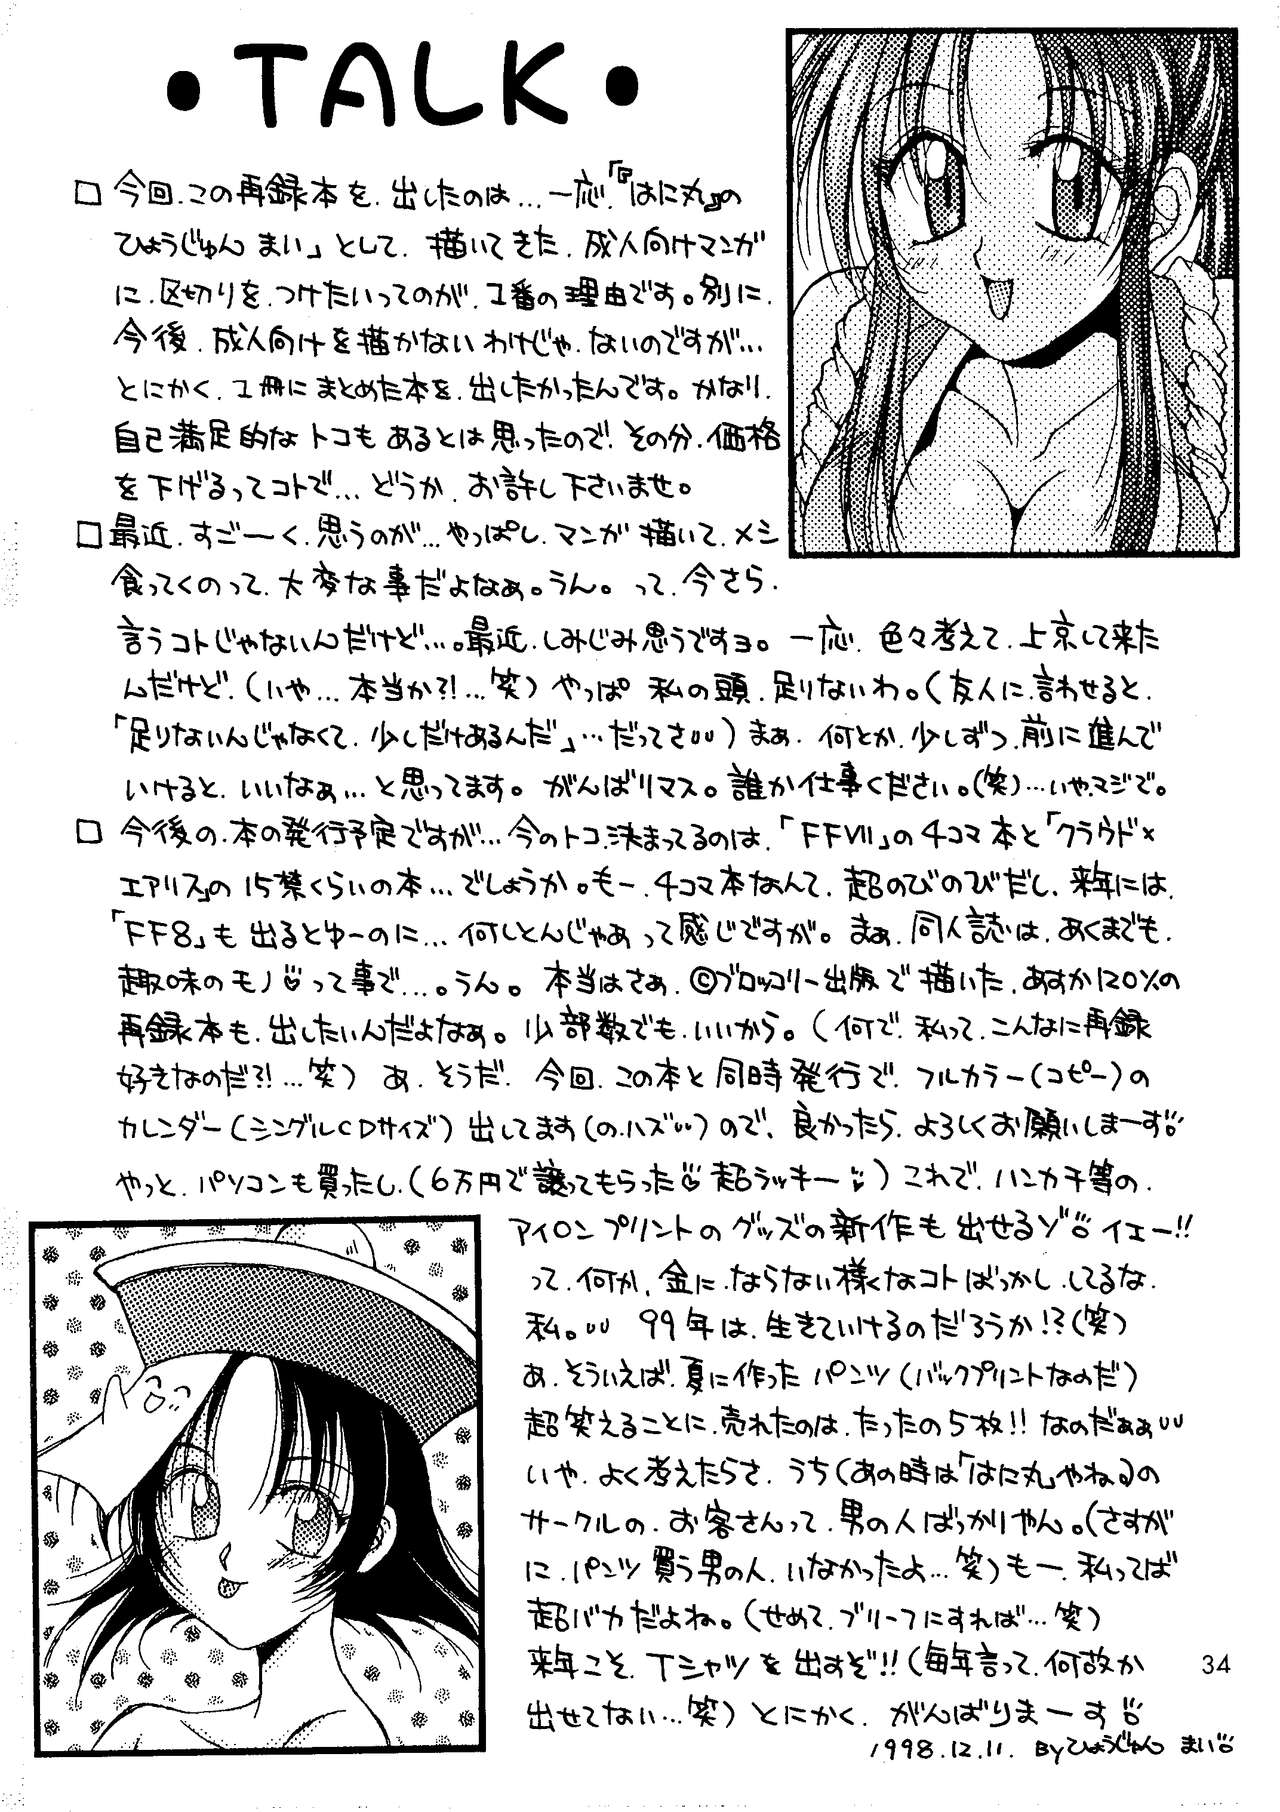 ・TALK・
□今回、この再録本を、出したのは…一応、「『はに丸』の
ひょうじゅん まい」として、描いてきた、成人向けマンガ
に、区切りを、つけたいってのが、1番の理由です。別に、
今後、成人向けを描かないわけじゃ、ないのですが…
とにかく、1冊にまとめた本を、出したかったんです。かなり、
自己満足的なトコもあるとは思ったので、その分、価格
を下げるってコトで…どうか、お許し下さいませ。
□最近、すご〜く、思うのが…やっぱし、マンガ描いて、メシ
食ってくのって、大変な事だよなぁ。うん。って、今さら、
言うコトじゃないんだけど…。最近、しみじみ思うですョ。一応、色々考えて、上京して来た
んだけど、(いや…本当か?!…笑)やっぱ 私の頭、足りないわ。(友人に、言わせると、
「足りないんじゃなくて、少しだけあるんだ」…だってさ)まぁ、何とか、少しずつ、前に進んで
いけると、いいなぁ…と思ってます。がんばリマス。誰か仕事ください。(笑)…いや、マジで。
□今後の、本の発行予定ですが…今のトコ、決まってるのは、「FFVII」の4コマ本と「クラウド×
エアリス」の15禁くらいの本…でしょうか。もー、4コマ本なんて、超のびのびだし、来年には、
「FF8」も出るとゆーのに…何しとんじゃあって感じですが。まぁ、同人誌は、あくまでも、
趣味のモノ♡って事で…。うん。本当はさぁ、©ブロッコリー出版で描いた、あすか120%の
再録本も、出したいんだよなぁ。少部数でも、いいから。(何で、私って、こんなに再録
好きなのだ?!…笑) あ、そうだ、今回、この本と同時発行で、フルカラー(コピー)の
カレンダー(シングルCDサイズ)出してます(の、ハズ)ので、良かったら、よろしくお願いしまーす
やっと、パソコンも買ったし、(6万円で譲ってもらった♡超ラッキー♡)これで、ハンカチ等の、
アイロンプリントのグッズの新作も出せるゾ イエー!!
って、何か、金に、ならない様なコトばっかし、してるな、
私。 99年は、生きていけるのだろうか!?(笑)
あ、そういえば、夏に作ったパンツ(バックプリントなのだ)
超笑えることに、売れたのは、たったの5枚!!なのだぁぁ
いや、よく考えたらさ、うち(あの時は「はに丸」やねる)の
サークルの、お客さんって、男の人ばっかりやん。(さすが
に、パンツ買う男の人、いなかったよ…笑)もー、私ってば
超バカだよね。(せめて、ブリーフにすれば…笑)
来年こそ、Tシャツを出すぞ!!(毎年言って、何故か
出せてない…笑)とにかく、がんばりまーす
1998.12.11. By ひょうじゅん まい
34